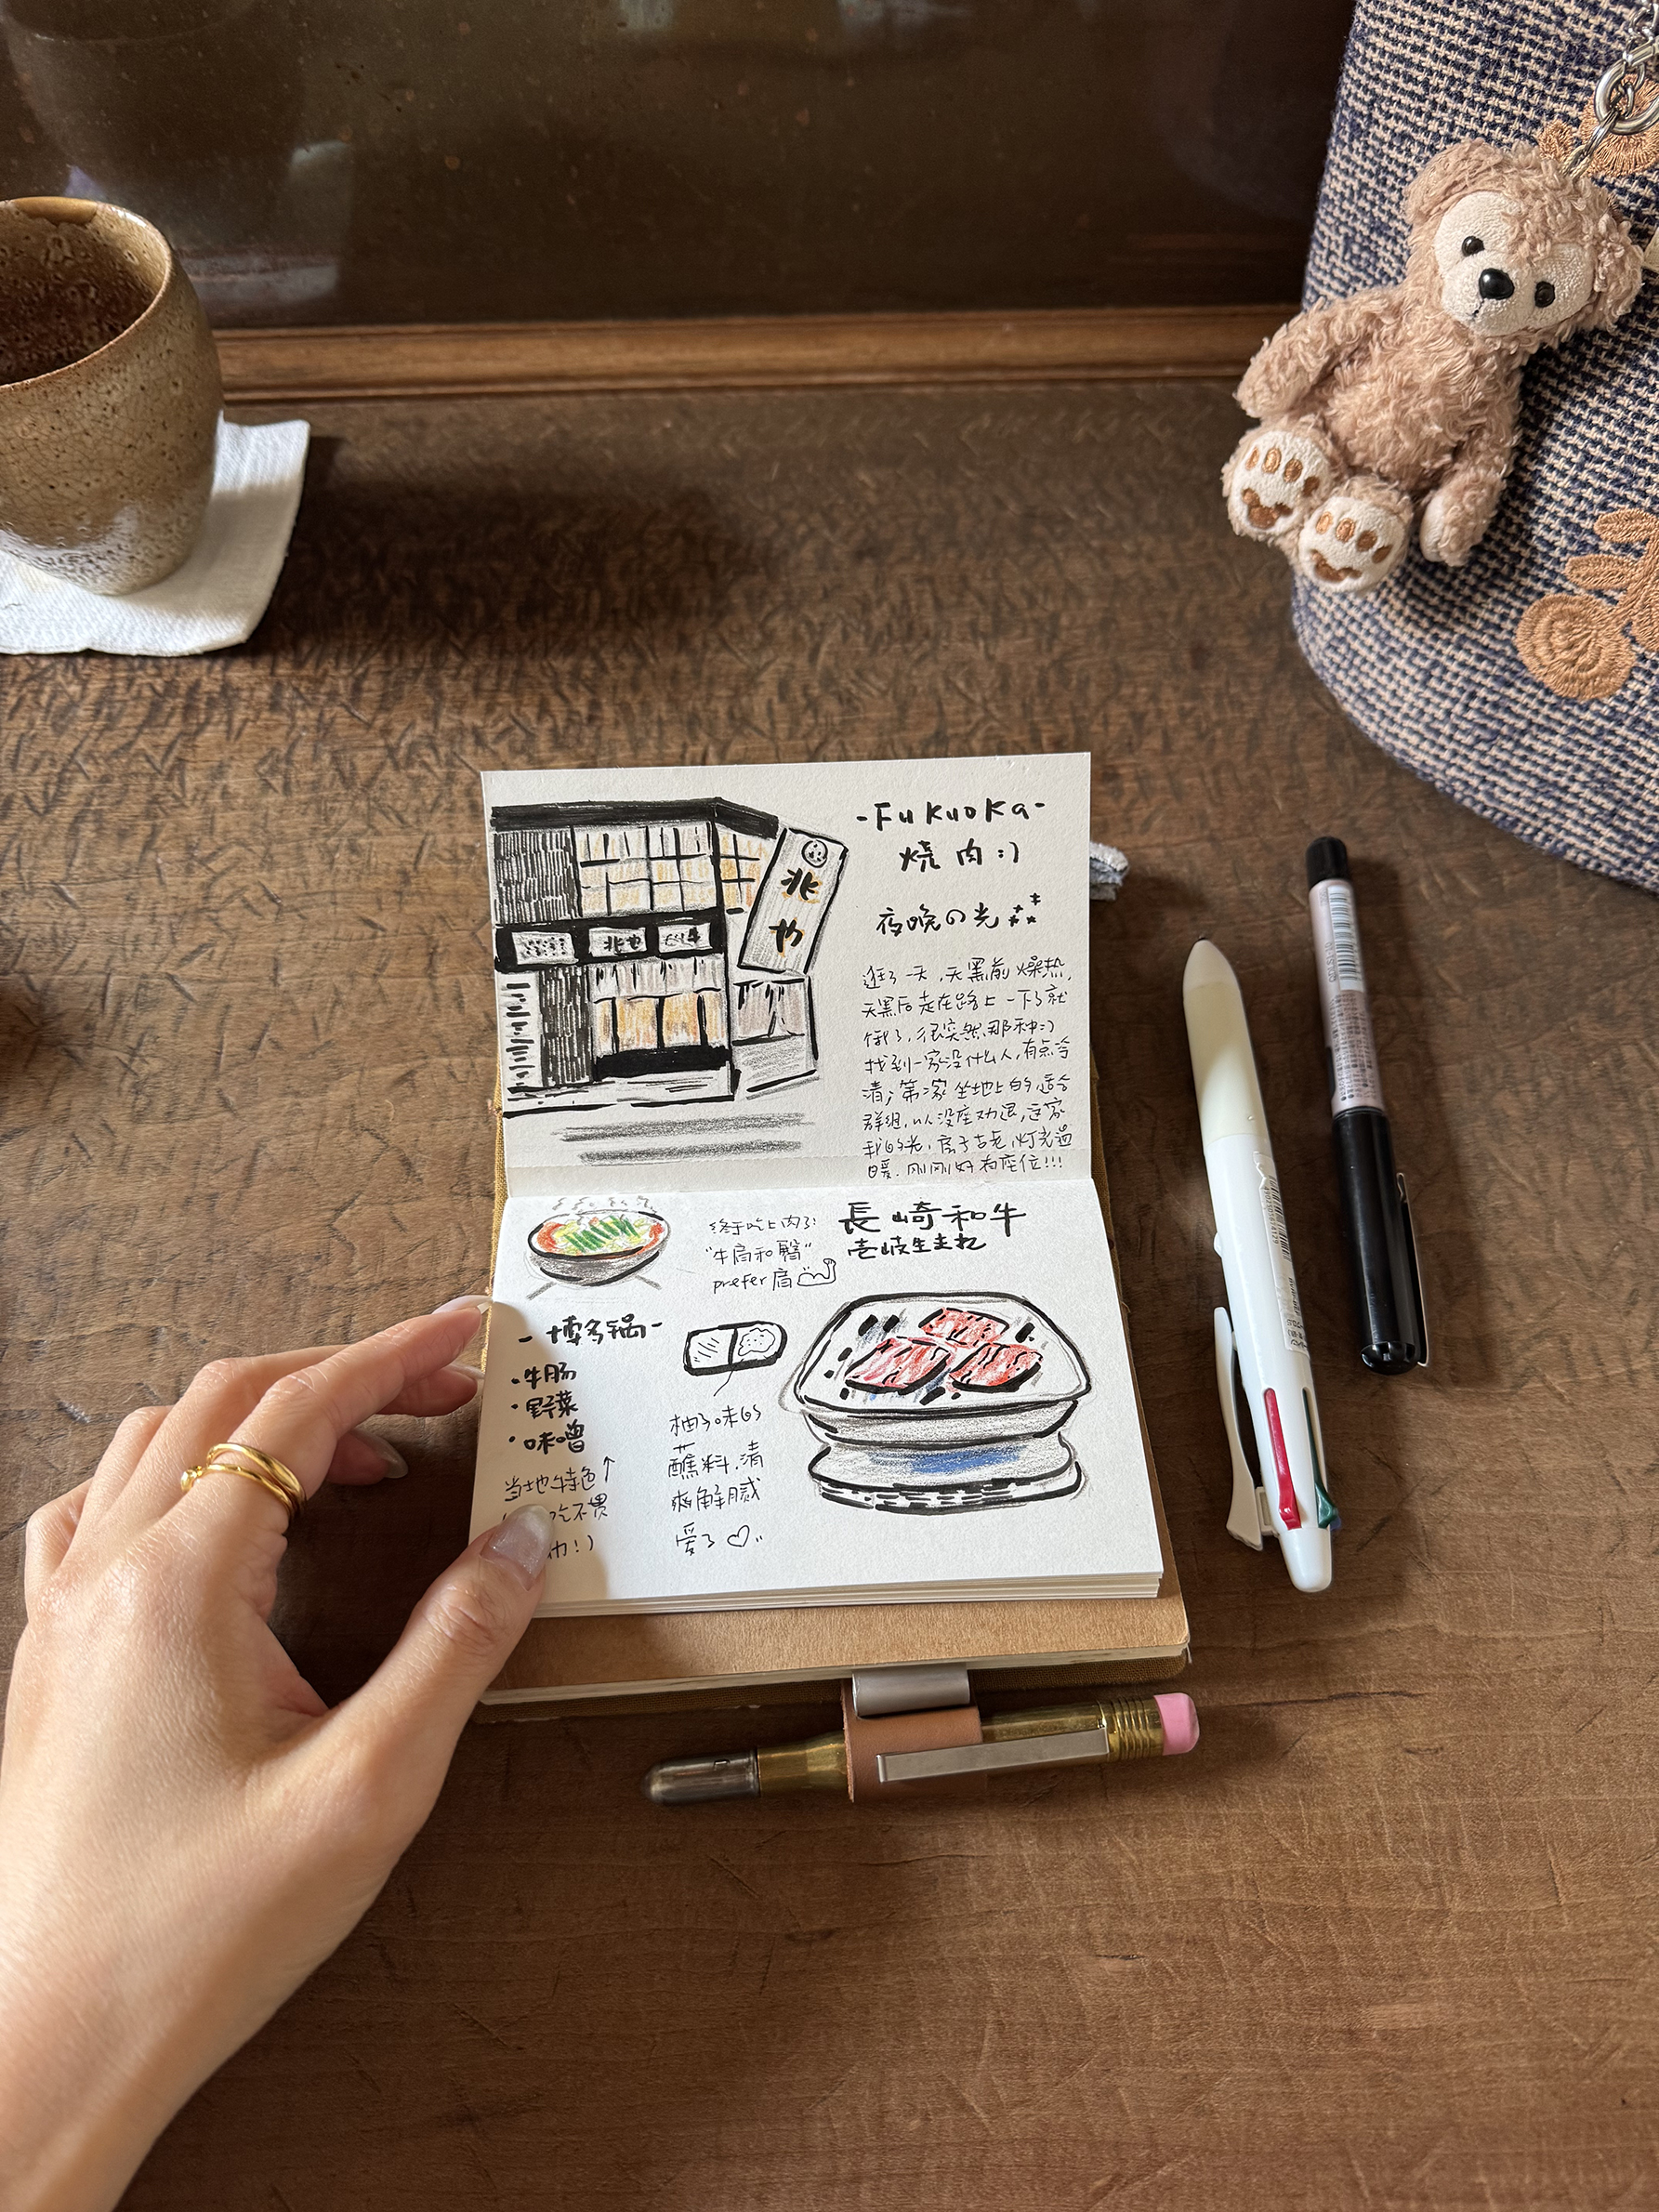 -FuKuoKa-
烧肉:)
夜晚の光
兆
や
逛了一天,天黑前燥热,
天黑后走在路上一下子就
饿了,很突然那种:)
找到一家没什么人,有点冷
清;第二家坐地上的,适合
群组,以没座劝退,这家
我的光,房子古老,灯光温
暖.刚刚好有座位!!!
终于吃上肉了:
"牛肩和臀"
prefer 肩
長崎和牛
壱岐生まれ
-博多锅-
·牛肠
·野菜
·味噌
当地特色↑
吃不惯
柚子味的
蘸料.清
爽解腻
爱了♡..